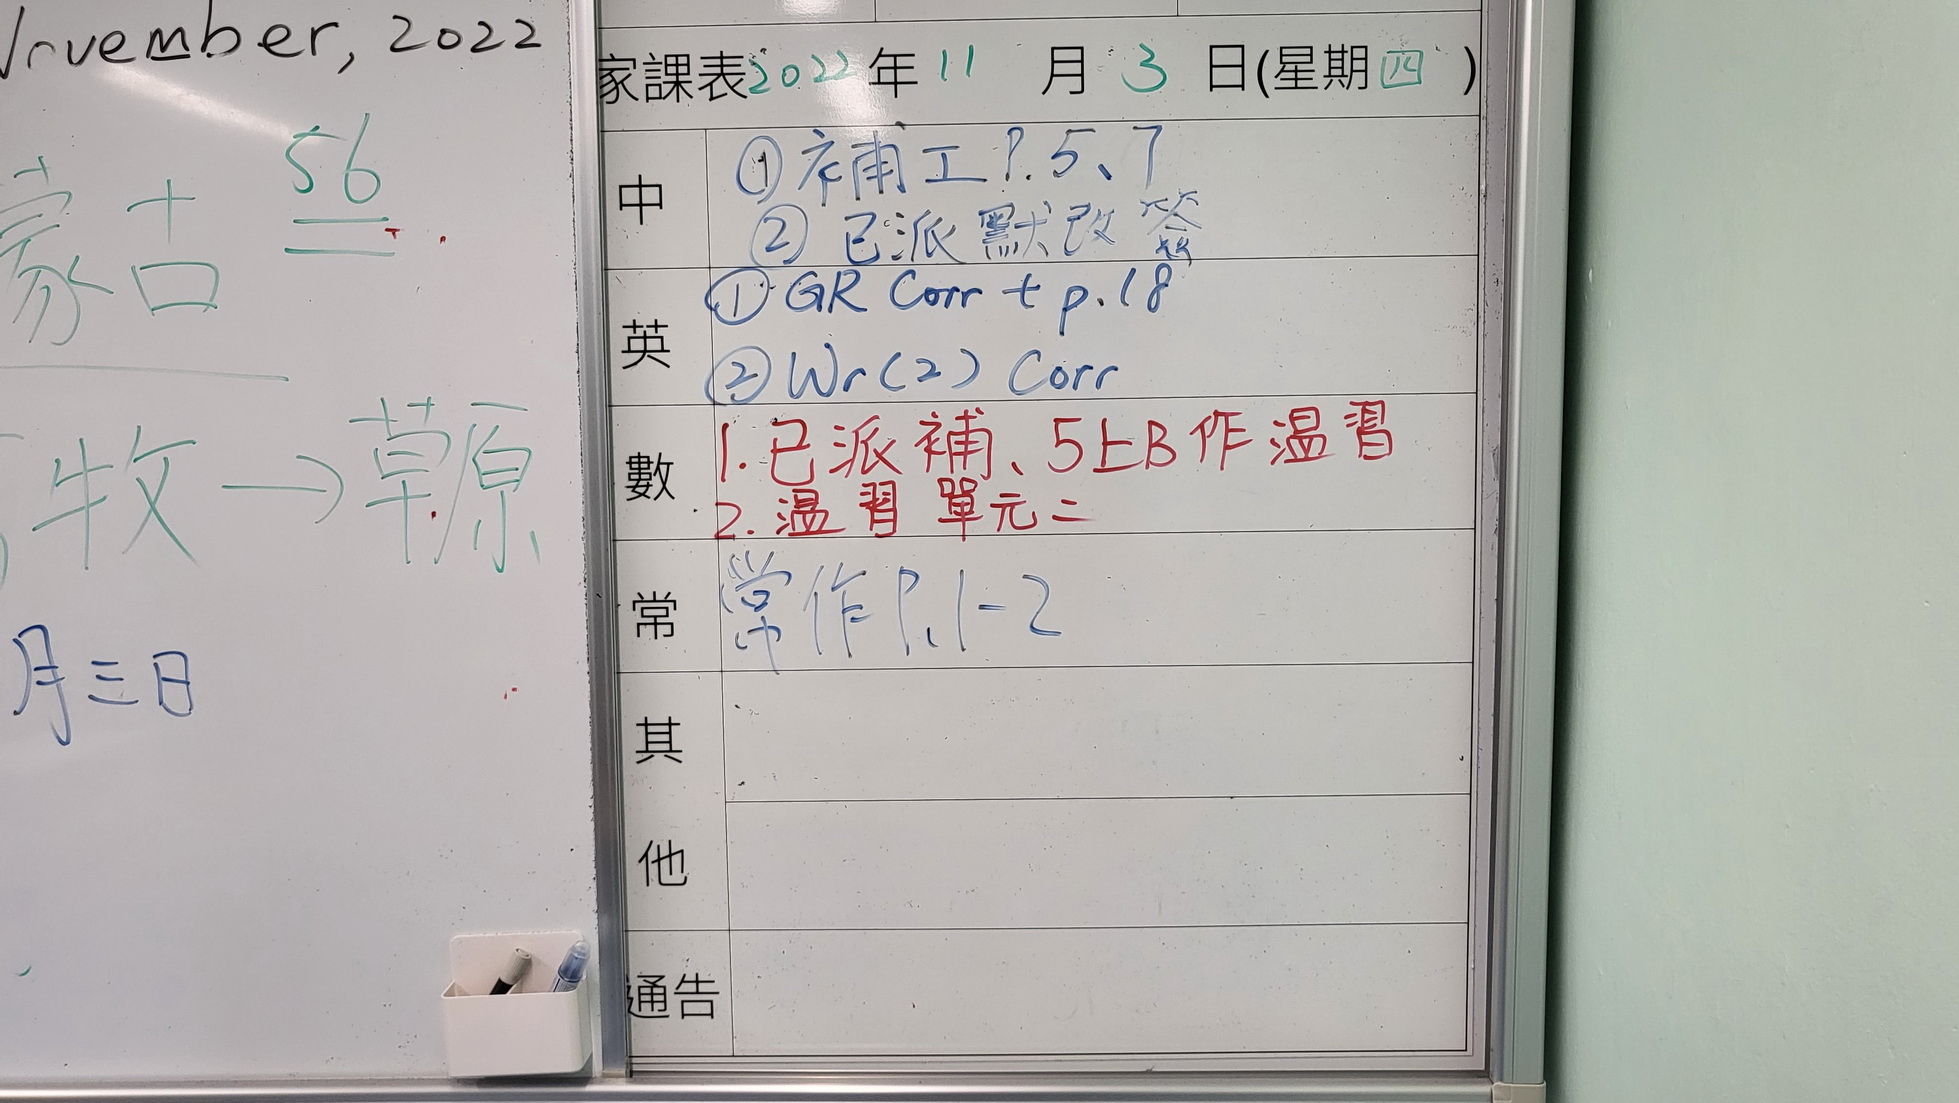 November, 2022
蒙古 56
牧→草原
月三日
家課表2022年11月3日(星期四)
中
①補工P.5、7
②已派默改簽
英
①GR Corr + p.18
②Wr(2) Corr
數
1.已派補、5上B作溫習
2.溫習單元二
常
常作P.1-2
其
他
通告